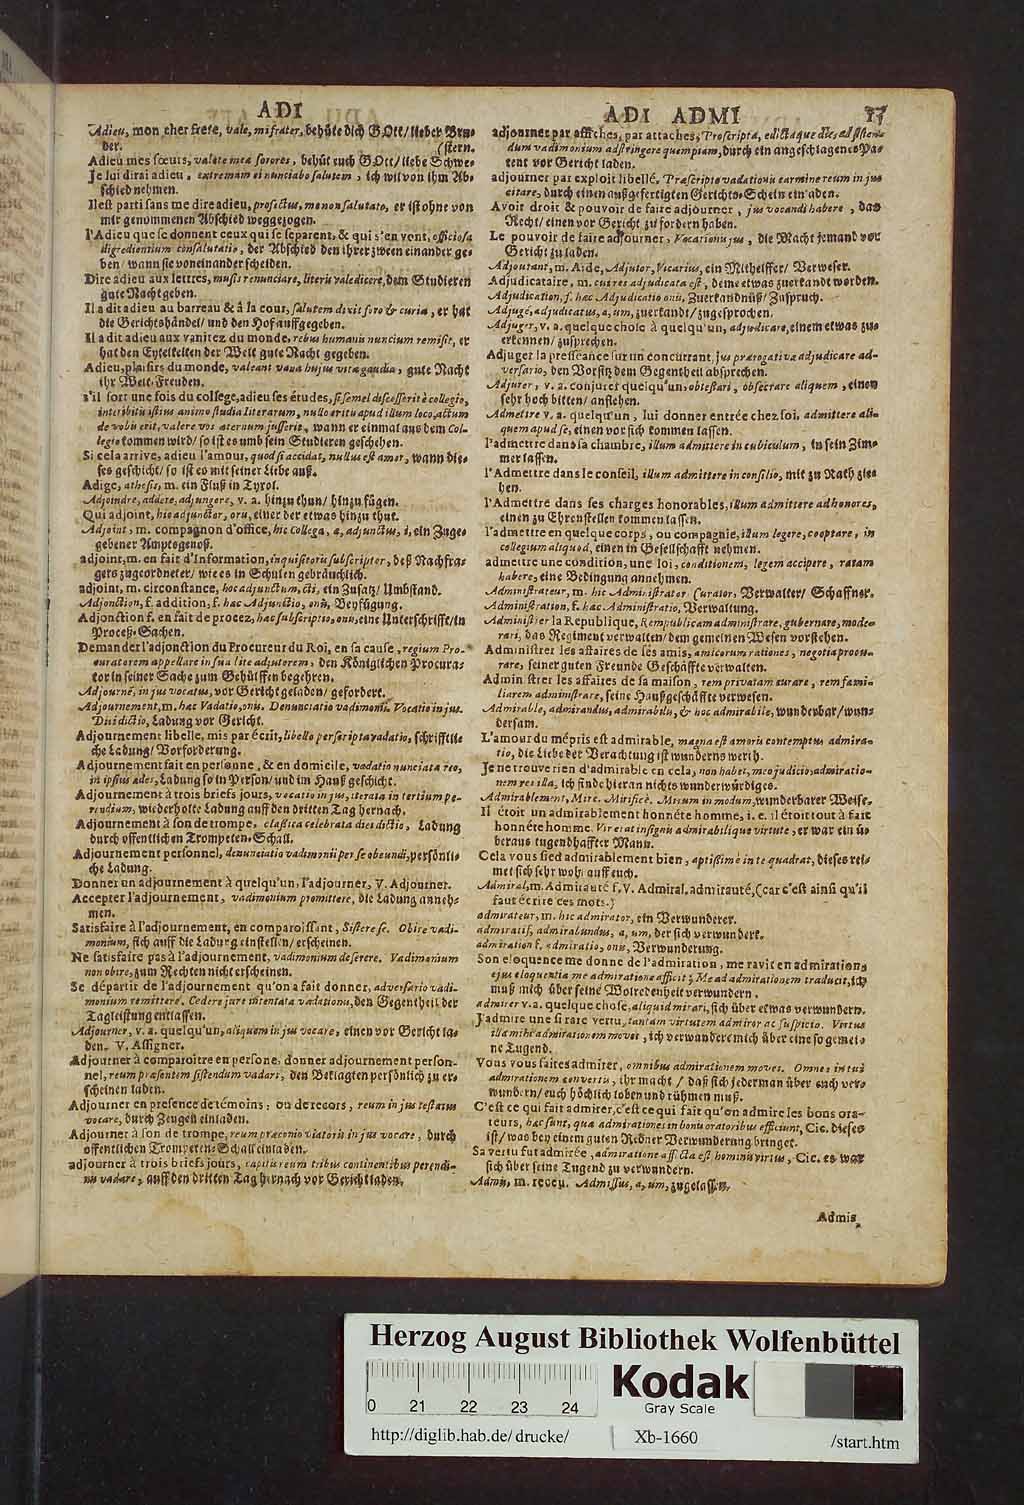 ADI
Adieu, mon cher frere, vale, mi frater, behüte dich GOtt/ lieber Bru-
der. (stern.
Adieu mes sœurs, valete meæ sorores, behüt euch GOtt/ liebe Schwe-
Je lui dirai adieu, extremam ei nunciabo salutem, ich wil von ihm Ab-
schied nehmen.
Il est parti sans me dire adieu, profectus, me non salutato, er ist ohne von
mir genommenen Abschied weggezogen.
l'Adieu que se donnent ceux qui se separent, & qui s'en vont, officiosa
digredientium consalutatio, der Abschied den ihrer zween einander ge-
ben/ wann sie voneinander scheiden.
Dire adieu aux lettres, musis renunciare, literis valedicere, dem Studieren
gute Nacht geben.
Il a dit adieu au barreau & à la cour, salutem dixit foro & curiæ, er hat
die Gerichtshändel/ und den Hof auffgegeben.
Il a dit adieu aux vanitez du monde, rebus humanis nuncium remisit, er
hat den Eytelkeiten der Welt gute Nacht gegeben.
Adieu, plaisirs du monde, valeant vana hujus vitæ gaudia, gute Nacht
ihr Welt-Freuden.
s'il sort une fois du college, adieu ses études, si semel discesserit è collegio,
interibit istius animo studia literarum, nullo erit apud illum loco, actum
de vobis erit, valere vos æternum jusserit, wann er einmal aus dem Col-
legio kommen wird/ so ist es umb sein Studieren geschehen.
Si cela arrive, adieu l'amour, quod si accidat, nullus est amor, wann die-
ses geschicht/ so ist es mit seiner Liebe auß.
Adige, athesis, m. ein Fluß in Tyrol.
Adjoindre, addere, adjungere, v. a. hinzu thun/ hinzu fügen.
Qui adjoint, hic adjunctor, oris, einer der etwas hinzu thut.
Adjoint, m. compagnon d'office, hic Collega, æ, adjunctus, i, ein Zuge-
gebener Amptsgenoß.
adjoint, m. en fait d'Information, inquisitoris subscriptor, deß Nachfra-
gers zugeordneter/ wie es in Schulen gebräuchlich.
adjoint, m. circonstance, hoc adjunctum, cti, ein Zusatz/ Umbstand.
Adjonction, f. addition, f. hæc Adjunctio, onis, Beyfügung.
Adjonction f. en fait de procez, hæc subscriptio, onis, eine Unterschriffte/ in
Proceß-Sachen.
Demander l'adjonction du Procureur du Roi, en sa cause, regium Pro-
curatorem appellare in sua lite adjutorem, den Königlichen Procura-
tor in seiner Sache zum Gehülffen begehren.
Adjourné, in jus vocatus, vor Gericht geladen/ gefordert.
Adjournement, m. hæc Vadatio, onis. Denunciatio vadimonii. Vocatio in jus.
Diei dictio, Ladung vor Gericht.
Adjournement libellé, mis par écrit, libello perscripta vadatio, schrifftli-
che Ladung/ Vorforderung.
Adjournement fait en personne, & en domicile, vadatio nunciata reo,
in ipsius ædes, Ladung so in Person/ und im Hauß geschicht.
Adjournement à trois briefs jours, vocatio in jus, iterata in tertium pe-
rendium, wiederholte Ladung auff den dritten Tag hernach.
Adjournement à son de trompe, classica celebrata diei dictio, Ladung
durch offentlichen Trompeten-Schall.
Adjournement personnel, denunciatio vadimonii per se obeundi, persönli-
che Ladung.
Donner un adjournement à quelqu'un, l'adjourner, V. Adjourner.
Accepter l'adjournement, vadimonium promittere, die Ladung anneh-
men.
Satisfaire à l'adjournement, en comparoissant, Sistere se. Obire vadi-
monium, sich auff die Ladung einstellen/ erscheinen.
Ne satisfaire pas à l'adjournement, vadimonium deserere. Vadimonium
non obire, zum Rechten nicht erscheinen.
Se départir de l'adjournement qu'on a fait donner, adversario vadi-
monium remittere. Cedere jure intentatæ vadationis, den Gegentheil der
Tagleistung entlassen.
Adjourner, v. a. quelqu'un, aliquem in jus vocare, einen vor Gericht la-
den. V. Assigner.
Adjourner à comparoitre en personne, donner adjournement person-
nel, reum præsentem sistendum vadari, den Beklagten persönlich zu er-
scheinen laden.
Adjourner en presence de témoins, ou de recors, reum in jus testatus
vocare, durch Zeugen einladen.
Adjourner à son de trompe, reum præconio viatoris in jus vocare, durch
offentlichen Trompeten-Schall einladen.
adjourner à trois briefs jours, capitis reum tribus continentibus perendi-
nis vadare, auff den dritten Tag hernach vor Gericht laden.
ADI ADMI 17
adjourner par affiches, par attaches, Proscripta, edictaque die, ad sisten-
dum vadimonium adstringere quempiam, durch ein angeschlagenes Pa-
tent vor Gericht laden.
adjourner par exploit libellé, Præscripto vadationis carmine reum in jus
citare, durch einen außgefertigten Gerichts-Schein ein laden.
Avoir droit & pouvoir de faire adjourner, jus vocandi habere, das
Recht/ einen vor Gericht zu fordern haben.
Le pouvoir de faire adjourner, Vocationis jus, die Macht jemand vor
Gericht zu laden.
Adjoutant, m. Aide, Adjutor, Vicarius, ein Mithelffer/ Verweser.
Adjudicataire, m. cui res adjudicata est, deme etwas zuerkandt worden.
Adjudication, f. hæc Adjudicatio onis, Zuerkandnüß/ Zuspruch.
Adjugé, adjudicatus, a, um, zuerkandt/ zugesprochen.
Adjuger, v. a. quelque chose à quelqu'un, adjudicare, einem etwas zu-
erkennen/ zusprechen.
Adjuger la presséance sur un concurrant, jus prærogativæ adjudicare ad-
versario, den Vorsitz dem Gegentheil absprechen.
Adjurer, v. a. conjurer quelqu'un, obtestari, obsecrare aliquem, einen
sehr hoch bitten/ anflehen.
Admettre v. a. quelqu'un, lui donner entrée chez soi, admittere ali-
quem apud se, einen vor sich kommen lassen.
l'admettre dans sa chambre, illum admittere in cubiculum, in sein Zim-
mer lassen.
l'Admettre dans le conseil, illum admittere in consilio, mit zu Rath zie-
hen.
l'Admettre dans ses charges honorables, illum admittere ad honores,
einen zu Ehrenstellen kommen lassen.
l'admettre en quelque corps, ou compagnie, illum legere, cooptare, in
collegium aliquod, einen in Gesellschafft nehmen.
admettre une condition, une loi, conditionem, legem accipere, ratam
habere, eine Bedingung annehmen.
Administrateur, m. hic Administrator Curator, Verwalter/ Schaffner.
Administration, f. hæc Administratio, Verwaltung.
Administrer la Republique, Rempublicam administrare, gubernare, mode-
rari, das Regiment verwalten/ dem gemeinen Wesen vorstehen.
Administrer les affaires de ses amis, amicorum rationes, negotia procu-
rare, seiner guten Freunde Geschäffte verwalten.
Administrer les affaires de sa maison, rem privatam curare, rem fami-
liarem administrare, seine Haußgeschäffte verwesen.
Admirable, admirandus, admirabilis, & hoc admirabile, wunderbar/ wun-
dersam.
L'amour du mépris est admirable, magna est amoris contemptus admira-
tio, die Liebe der Verachtung ist wunderns werth.
Je ne trouve rien d'admirable en cela, non habet, meo judicio, admiratio-
nem res illa, ich finde hieran nichts wunderwürdiges.
Admirablement, Mire. Mirificè. Mirum in modum, wunderbarer Weise.
Il étoit un admirablement honnéte homme, i. e. il étoit tout à fait
honnéte homme. Vir erat insignis admirabilique virtute, er war ein ü-
beraus tugendhaffter Mann.
Cela vous sied admirablement bien, aptissimè in te quadrat, dieses rei-
met sich sehr wol auff euch.
Admiral, m. Admirauté f. V. Admiral, admirauté, (car c'est ainsi qu'il
faut écrire ces mots.)
admirateur, m. hic admirator, ein Verwunderer.
admiratif, admirabundus, a, um, der sich verwundert.
admiration f. admiratio, onis, Verwunderung.
Son eloquence me donne de l'admiration, me ravit en admiration,
ejus eloquentia me admiratione afficit; Me ad admirationem traducit, ich
muß mich über seine Wolredenheit verwundern.
admirer v. a. quelque chose, aliquid mirari, sich über etwas verwundern.
J'admire une si rare vertu, tantam virtutem admiror ac suspicio. Virtus
illa mihi admirationem movet, ich verwundere mich über eine so gemei-
ne Tugend.
Vous vous faites admirer, omnibus admirationem moves. Omnes in tui
admirationem convertis, ihr macht/ daß sich jederman über euch ver-
wundern/ euch höchlich loben und rühmen muß.
C'est ce qui fait admirer, c'est ce qui fait qu'on admire les bons ora-
teurs, hæc sunt, quæ admirationes in bonis oratoribus efficiunt, Cic. dieses
ist/ was bey einem guten Redner Verwunderung bringet.
Sa vertu fut admirée, admiratione affecta est hominis virtus, Cic. es war
sich über seine Tugend zu verwundern.
Admis, m. receu. Admissus, a, um, zugelassen.
Admis,
Herzog August Bibliothek Wolfenbüttel
0 21 22 23 24
Kodak
Gray Scale
http://diglib.hab.de/drucke/ Xb-1660 /start.htm